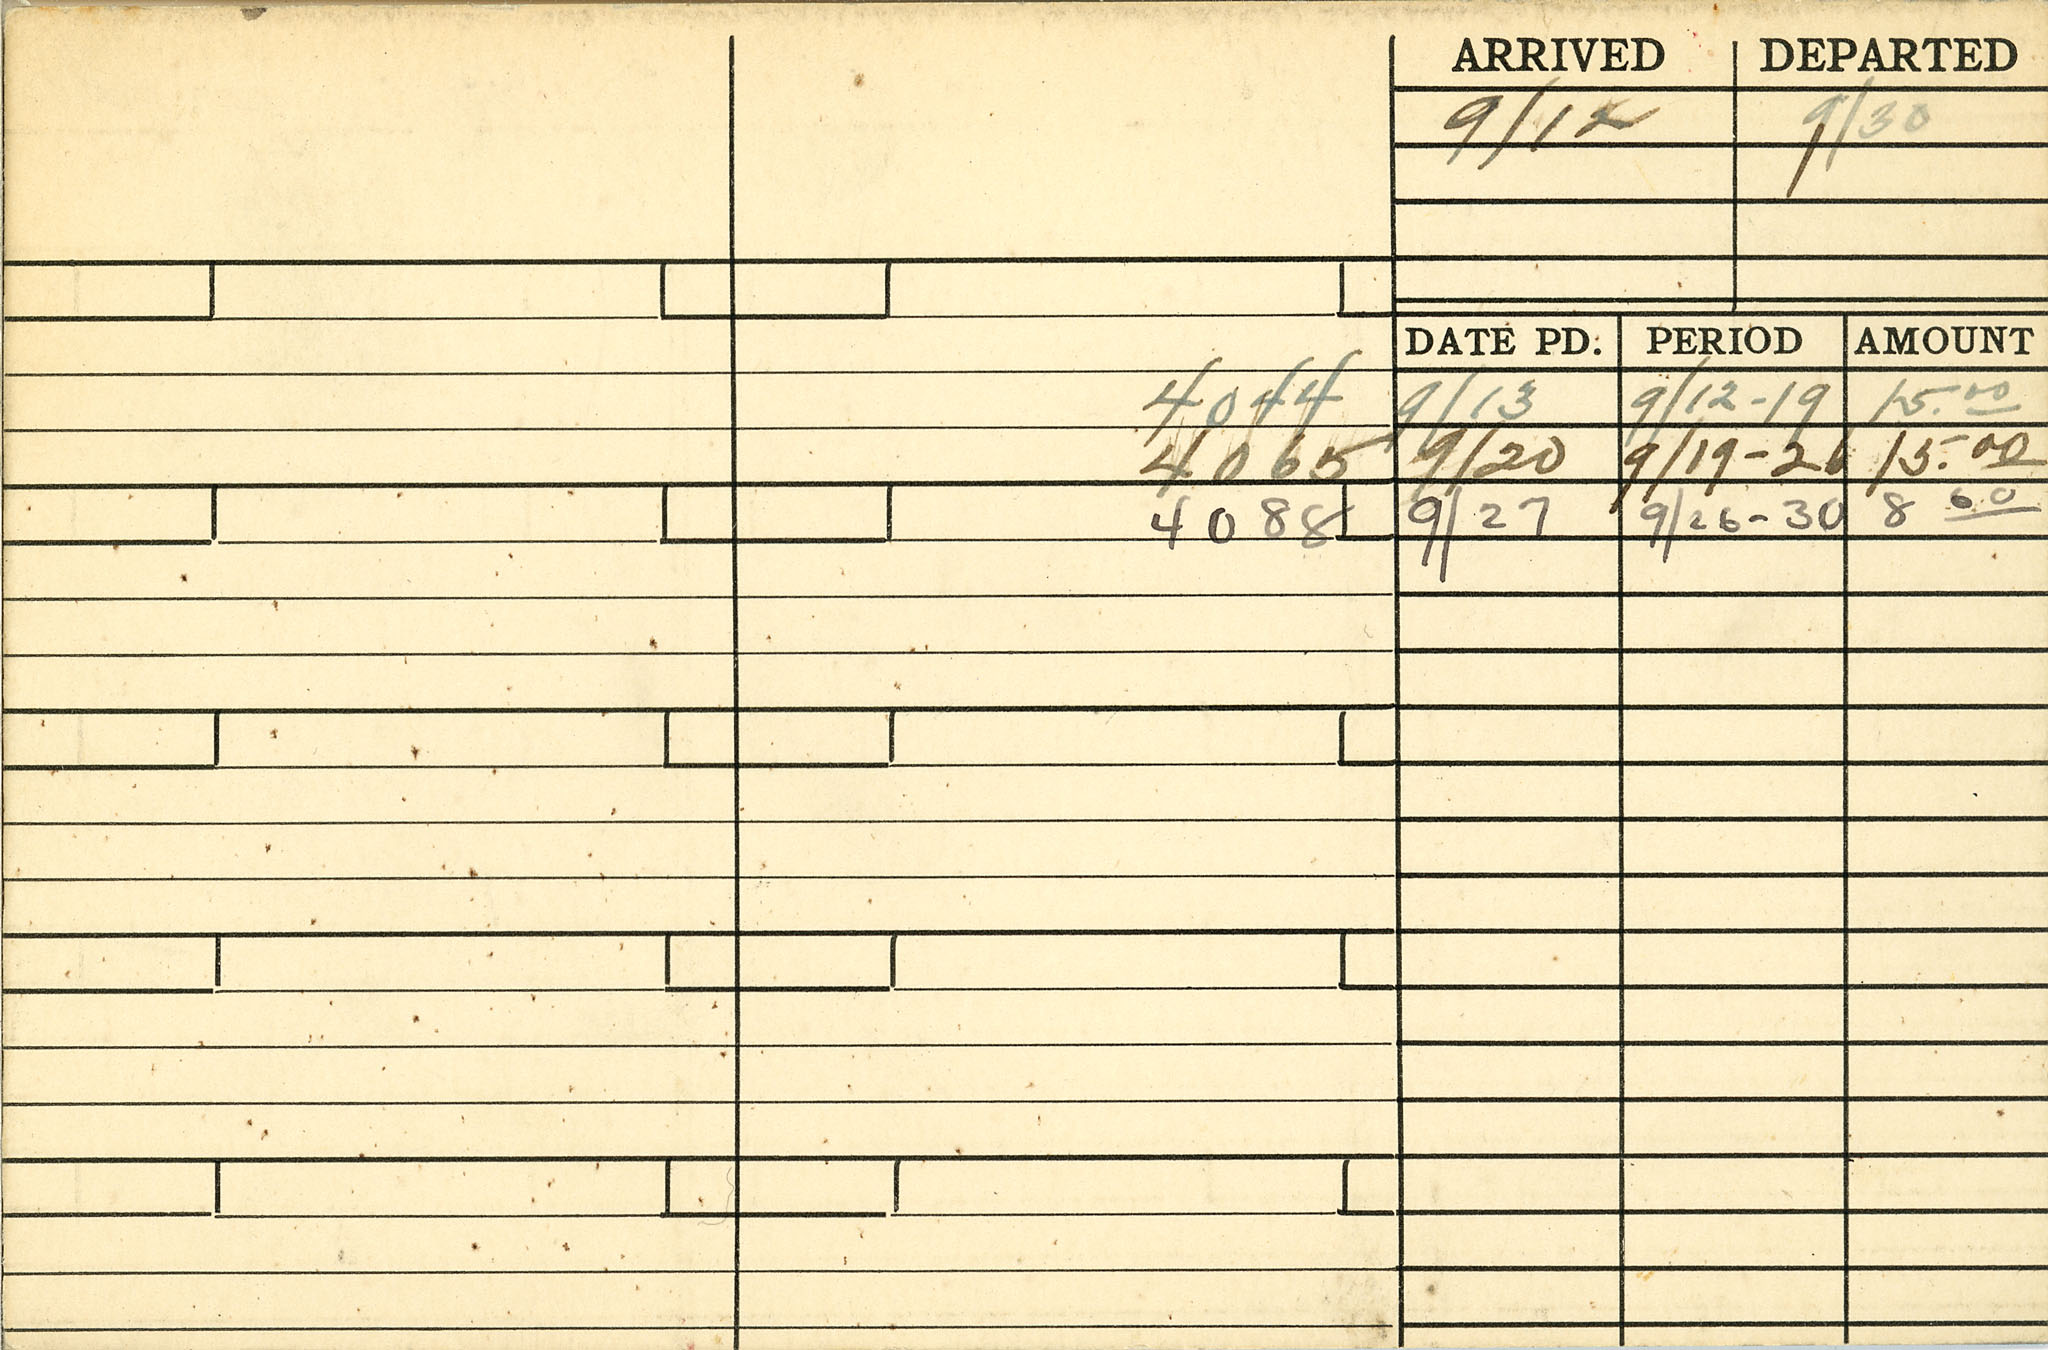 ARRIVED DEPARTED
9/12 9/30
DATE PD. PERIOD AMOUNT
4044 9/13 9/12-19 15.00
4065 9/20 9/19-26 15.00
4088 9/27 9/26-30 8 60